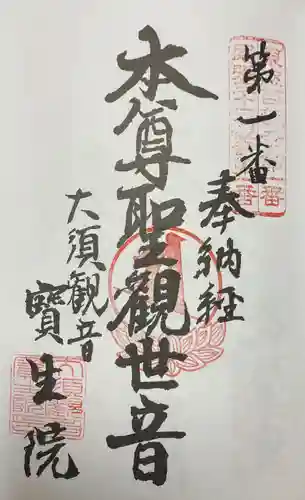 第一番
奉納経
本尊聖観世音
大須観音
寳生院